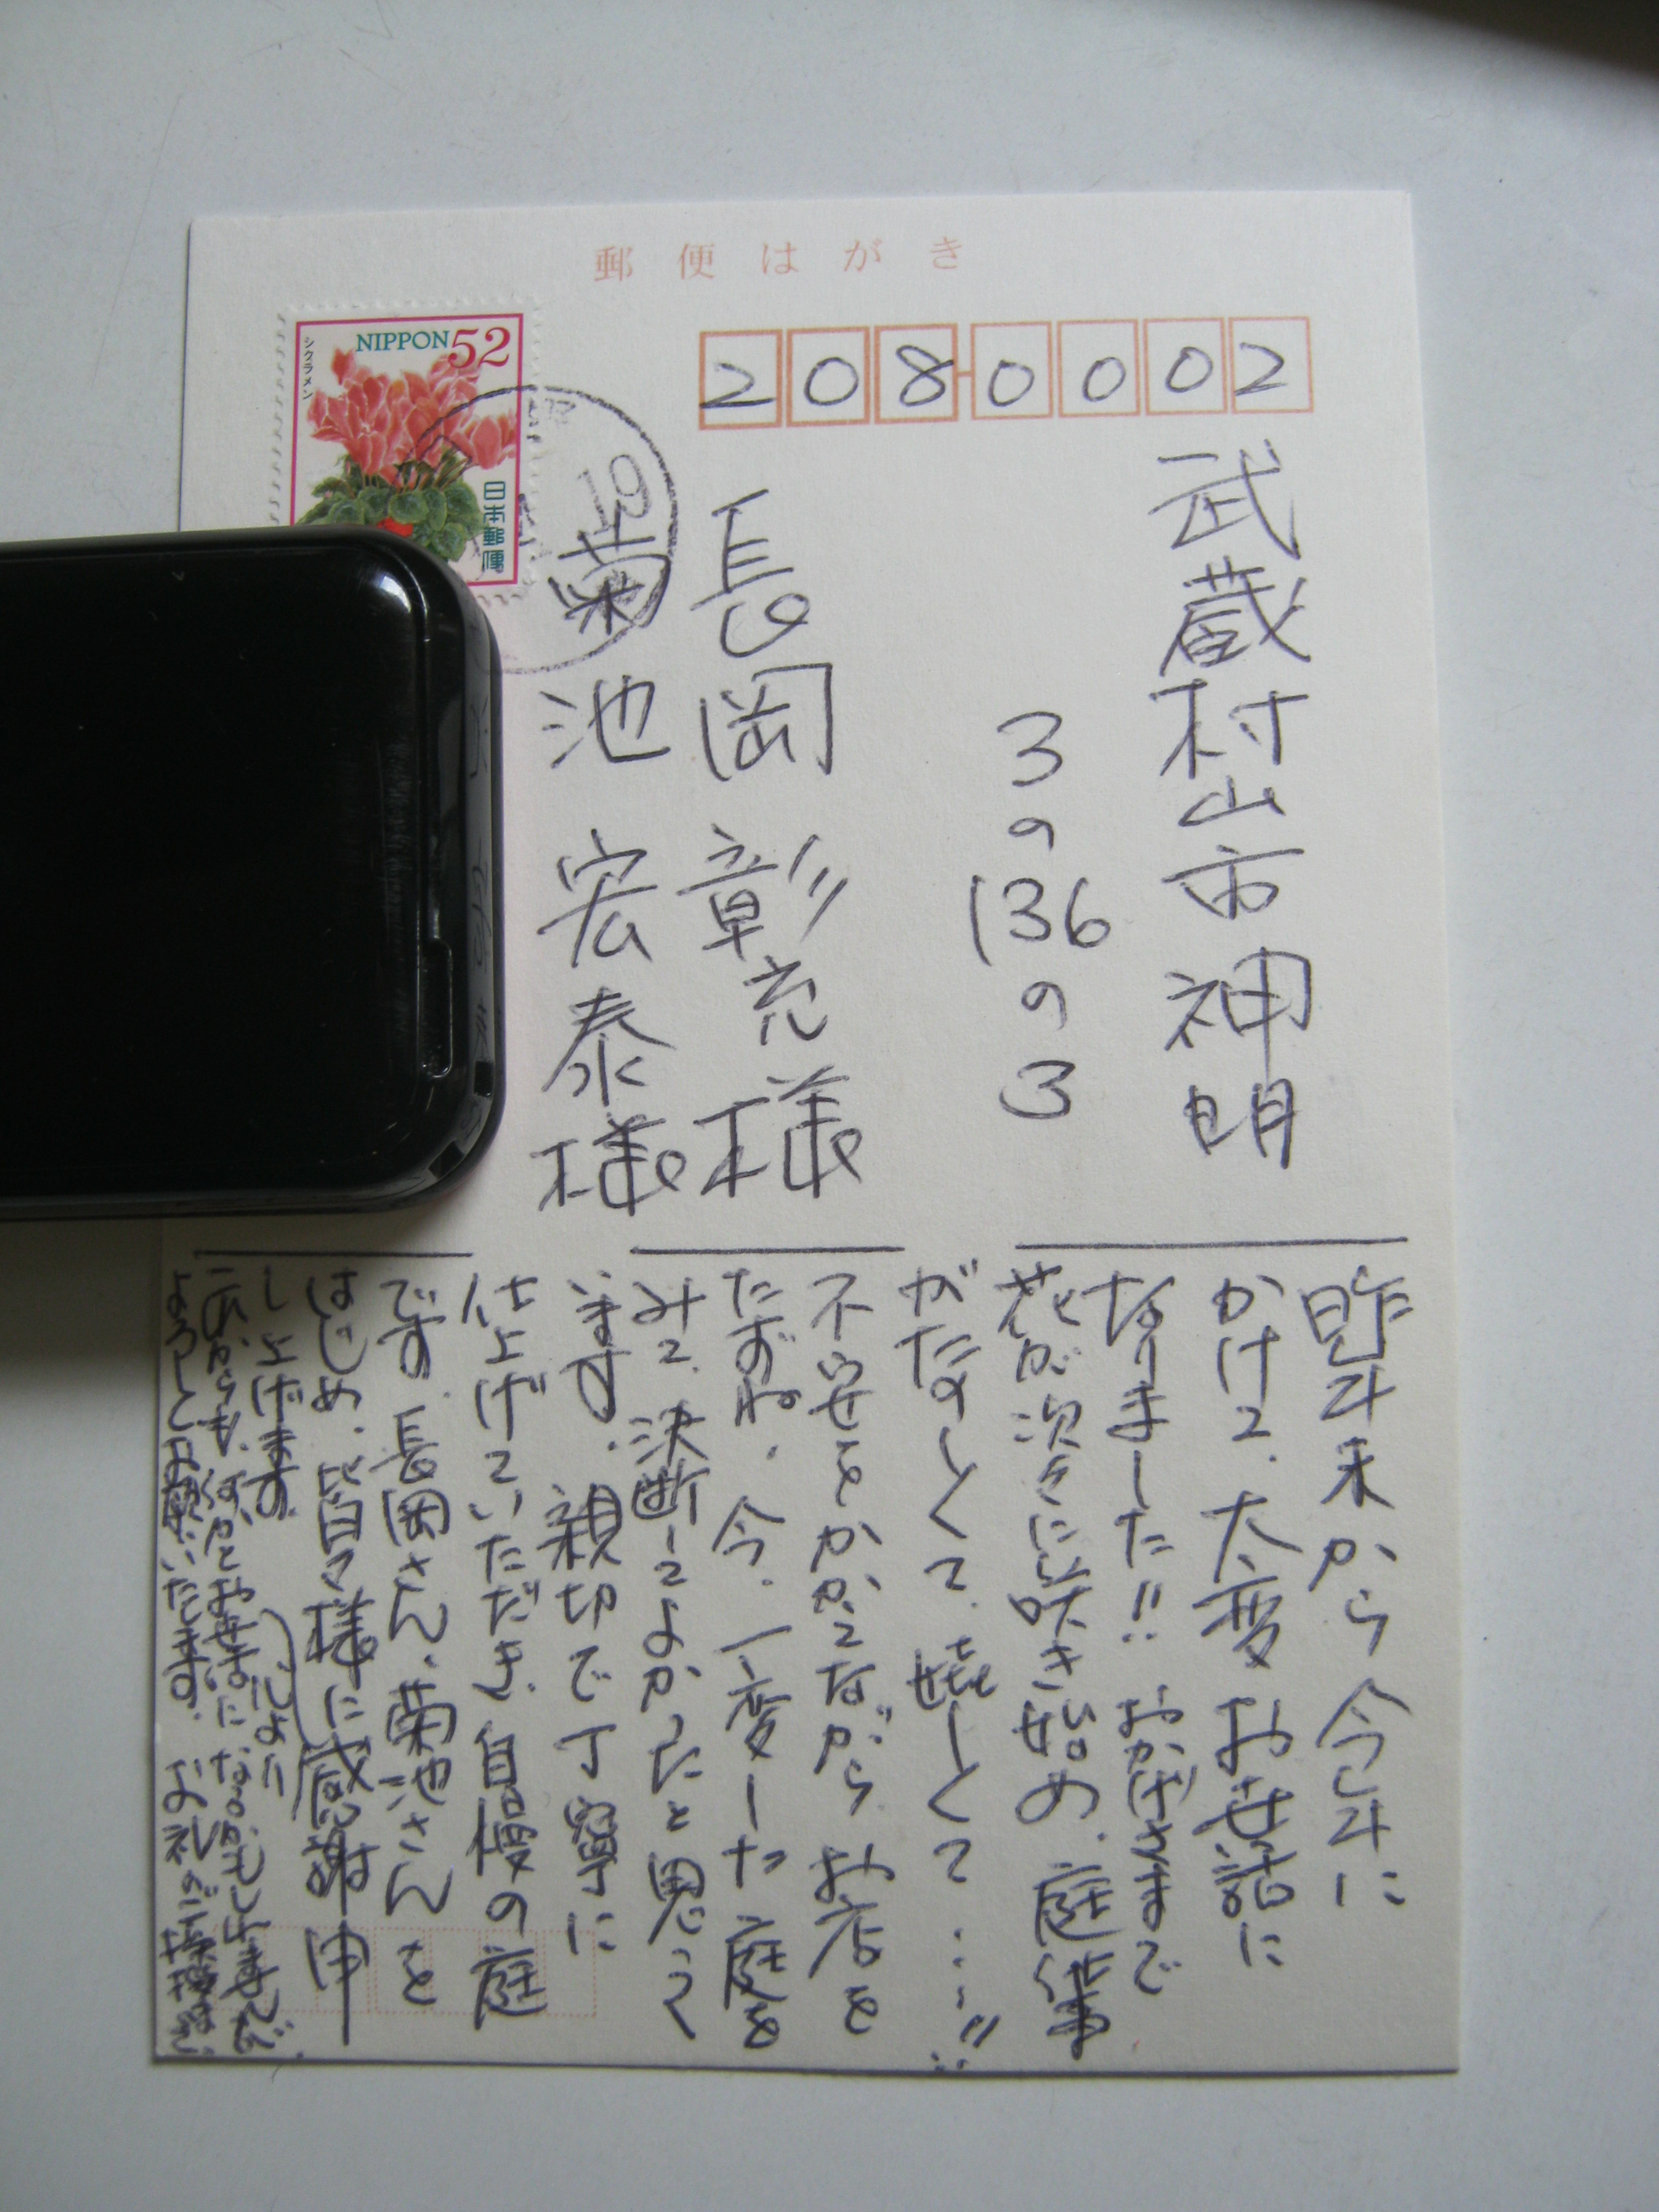 郵便はがき
NIPPON 52
シクラメン
日本郵便
19
208-0002
武蔵村山市神明
3の136の3
長岡彰充様
菊池宏泰様
昨年末から今年に
かけて、大変お世話に
なりました!! おかげさまで
花が次々に咲き始め、庭
がたのしくて、嬉しくて……!!
不安をかかえながらお店を
たずね、今、一変した庭を
みて、決断してよかったと思って
います。親切で丁寧に
仕上げていただき、自慢の庭
です。長岡さん、菊池さんを
はじめ、皆々様に感謝申
し上げます。
よろしくお願いいたします。